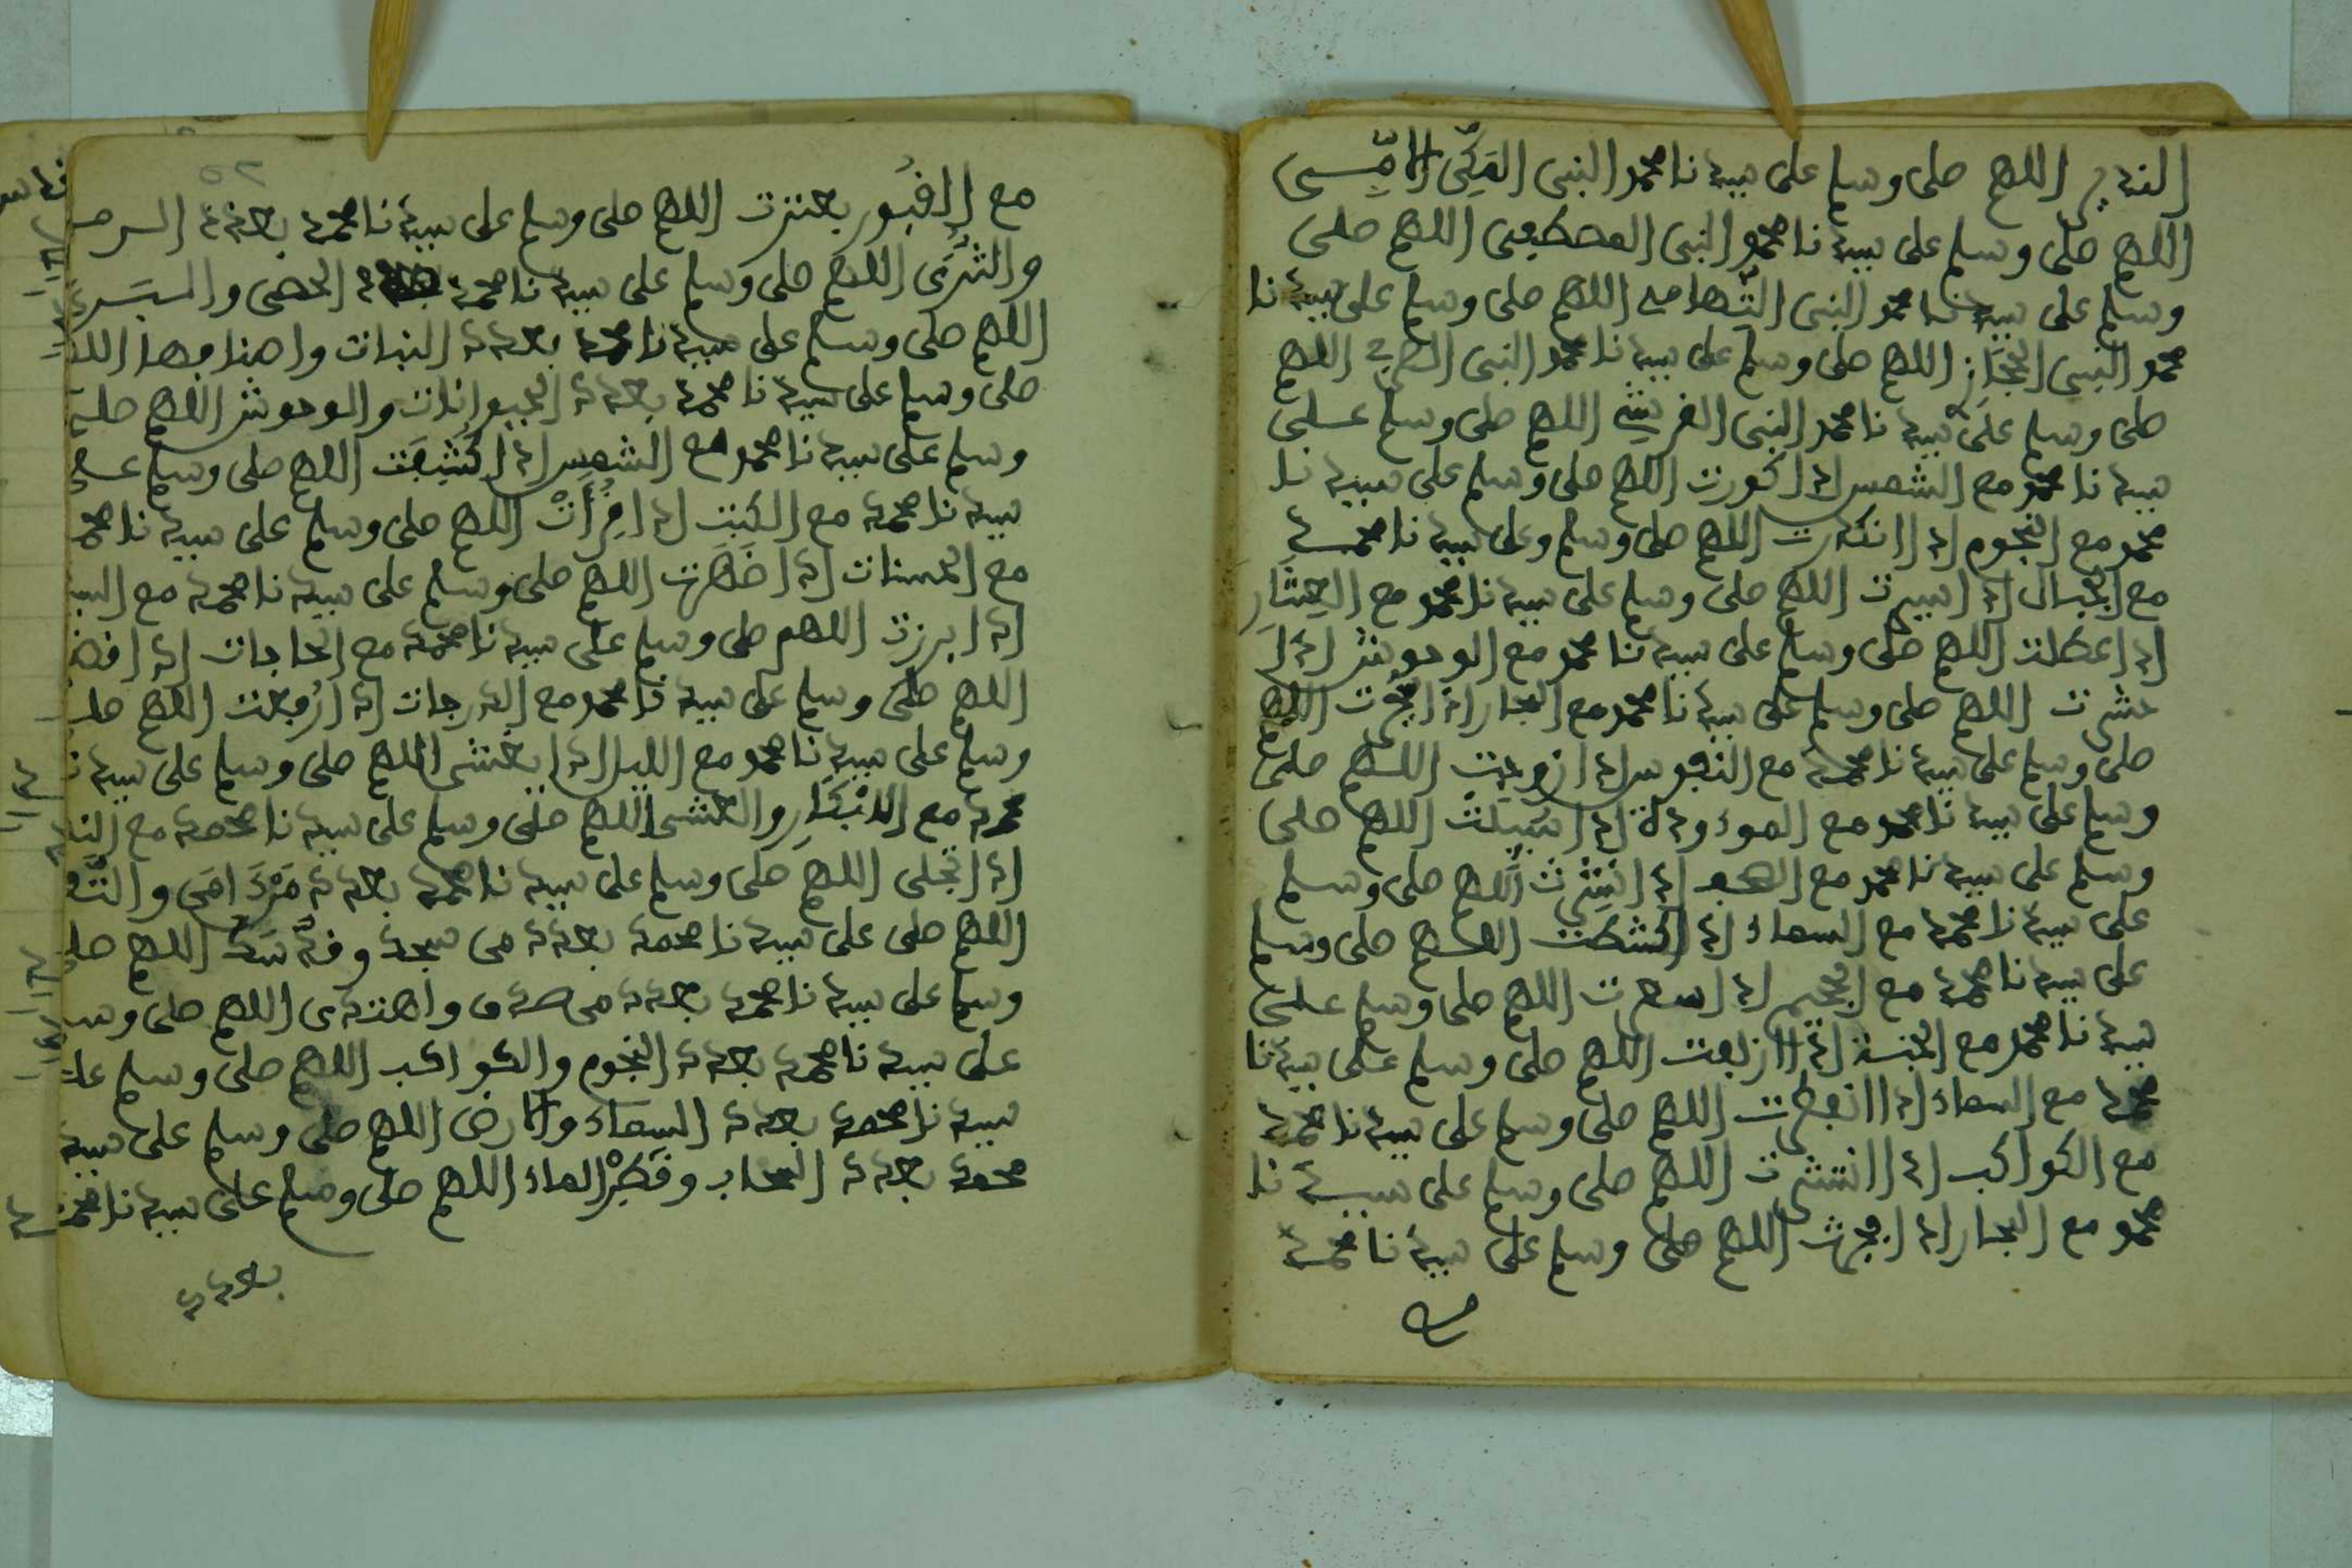 النذير اللهم صلى وسلم على سيدنا محمد النبى المَكِّى الامِّى
اللهم صلى وسلم على سيدنا محمد النبى المصطفى اللهم صلى
وسلم على سيدنا محمد النبى التِّهامى اللهم صلى وسلم على سيدنا
محمد النبى الحجازِ اللهم صلى وسلم على سيدنا محمد النبى اللهم
صلى وسلم على سيدنا محمد النبى القريشِ اللهم صلى وسلم على
سيدنا محمد مع الشمس اذا كورت اللهم صلى وسلم على سيدنا
محمد مع النجوم اذا انكدرت اللهم صلى وسلم وعلى سيدنا محمد
مع الجبال اذا سيرت اللهم صلى وسلم على سيدنا محمد مع العِشَارِ
اذا عطلت اللهم صلى وسلم على سيدنا محمد مع الوحوش اذا
حشرت اللهم صلى وسلم على سيدنا محمد مع البحار اذا فجرت اللهم
صلى وسلم على سيدنا محمد مع النفوس اذا زوجت اللهم صلى
وسلم على سيدنا محمد مع الموءودة اذا سُيِلَتْ اللهم صلى
وسلم على سيدنا محمد مع الصحف اذا نُشِرَت اللهم صلى وسلم
على سيدنا محمد مع السماء اذا كشطت اللهم صلى وسلم
على سيدنا محمد مع الجحيم اذا سعرت اللهم صلى وسلم على
سيدنا محمد مع الجنة اذا ازلفت اللهم صلى وسلم على سيدنا
محمد مع السماء اذا انفطرت اللهم صلى وسلم على سيدنا محمد
مع الكواكب اذا انتشرت اللهم صلى وسلم على سيدنا
محمد مع البحار اذا فجرت اللهم صلى وسلم على سيدنا محمد
مع
٥٢
مع القبُور بعثرت اللهم صلى وسلم على سيدنا محمد بعدد الرمـ
والثَرَى اللهم صلى وسلم على سيدنا محمد الحصى والـ
اللهم صلى وسلم على سيدنا محمد بعدد النبات واصنافها اللهـ
صلى وسلم على سيدنا محمد بعدد الحيوانات والوحوش اللهم صلى
وسلم على سيدنا محمد مع الشمس اذا كُشِفَت اللهم صلى وسلم على
سيدنا محمد مع الكتب اذا قُرِأَتْ اللهم صلى وسلم على سيدنا محمـ
مع الحسنات اذا ظَهَرت اللهم صلى وسلم على سيدنا محمد مع السـ
اذا برزت اللهم صلى وسلم على سيدنا محمد مع الحاجات اذا قضـ
اللهم صلى وسلم على سيدنا محمد مع الدرجات اذا رُفعت اللهم صلـ
وسلم على سيدنا محمد مع الليل اذا يغشى اللهم صلى وسلم على سيدنـ
محمد مع الابْكَارِ والعشى اللهم صلى وسلم على سيدنا محمد مع النـ
اذا تجلى اللهم صلى وسلم على سيدنا محمد بعدد امَى والتَّـ
اللهم صلى على سيدنا محمد بعدد من سجد و اللهم صلـ
وسلم على سيدنا محمد بعدد من صدق واهتدى اللهم صلى وسـ
على سيدنا محمد بعدد النجوم والكواكب اللهم صلى وسلم على
سيدنا محمد بعدد السماء والارض اللهم صلى وسلم على سيدنا
محمد بعدد السحاب وقَطْرِ الماء اللهم صلى وسلم على سيدنا محمد
بعدد